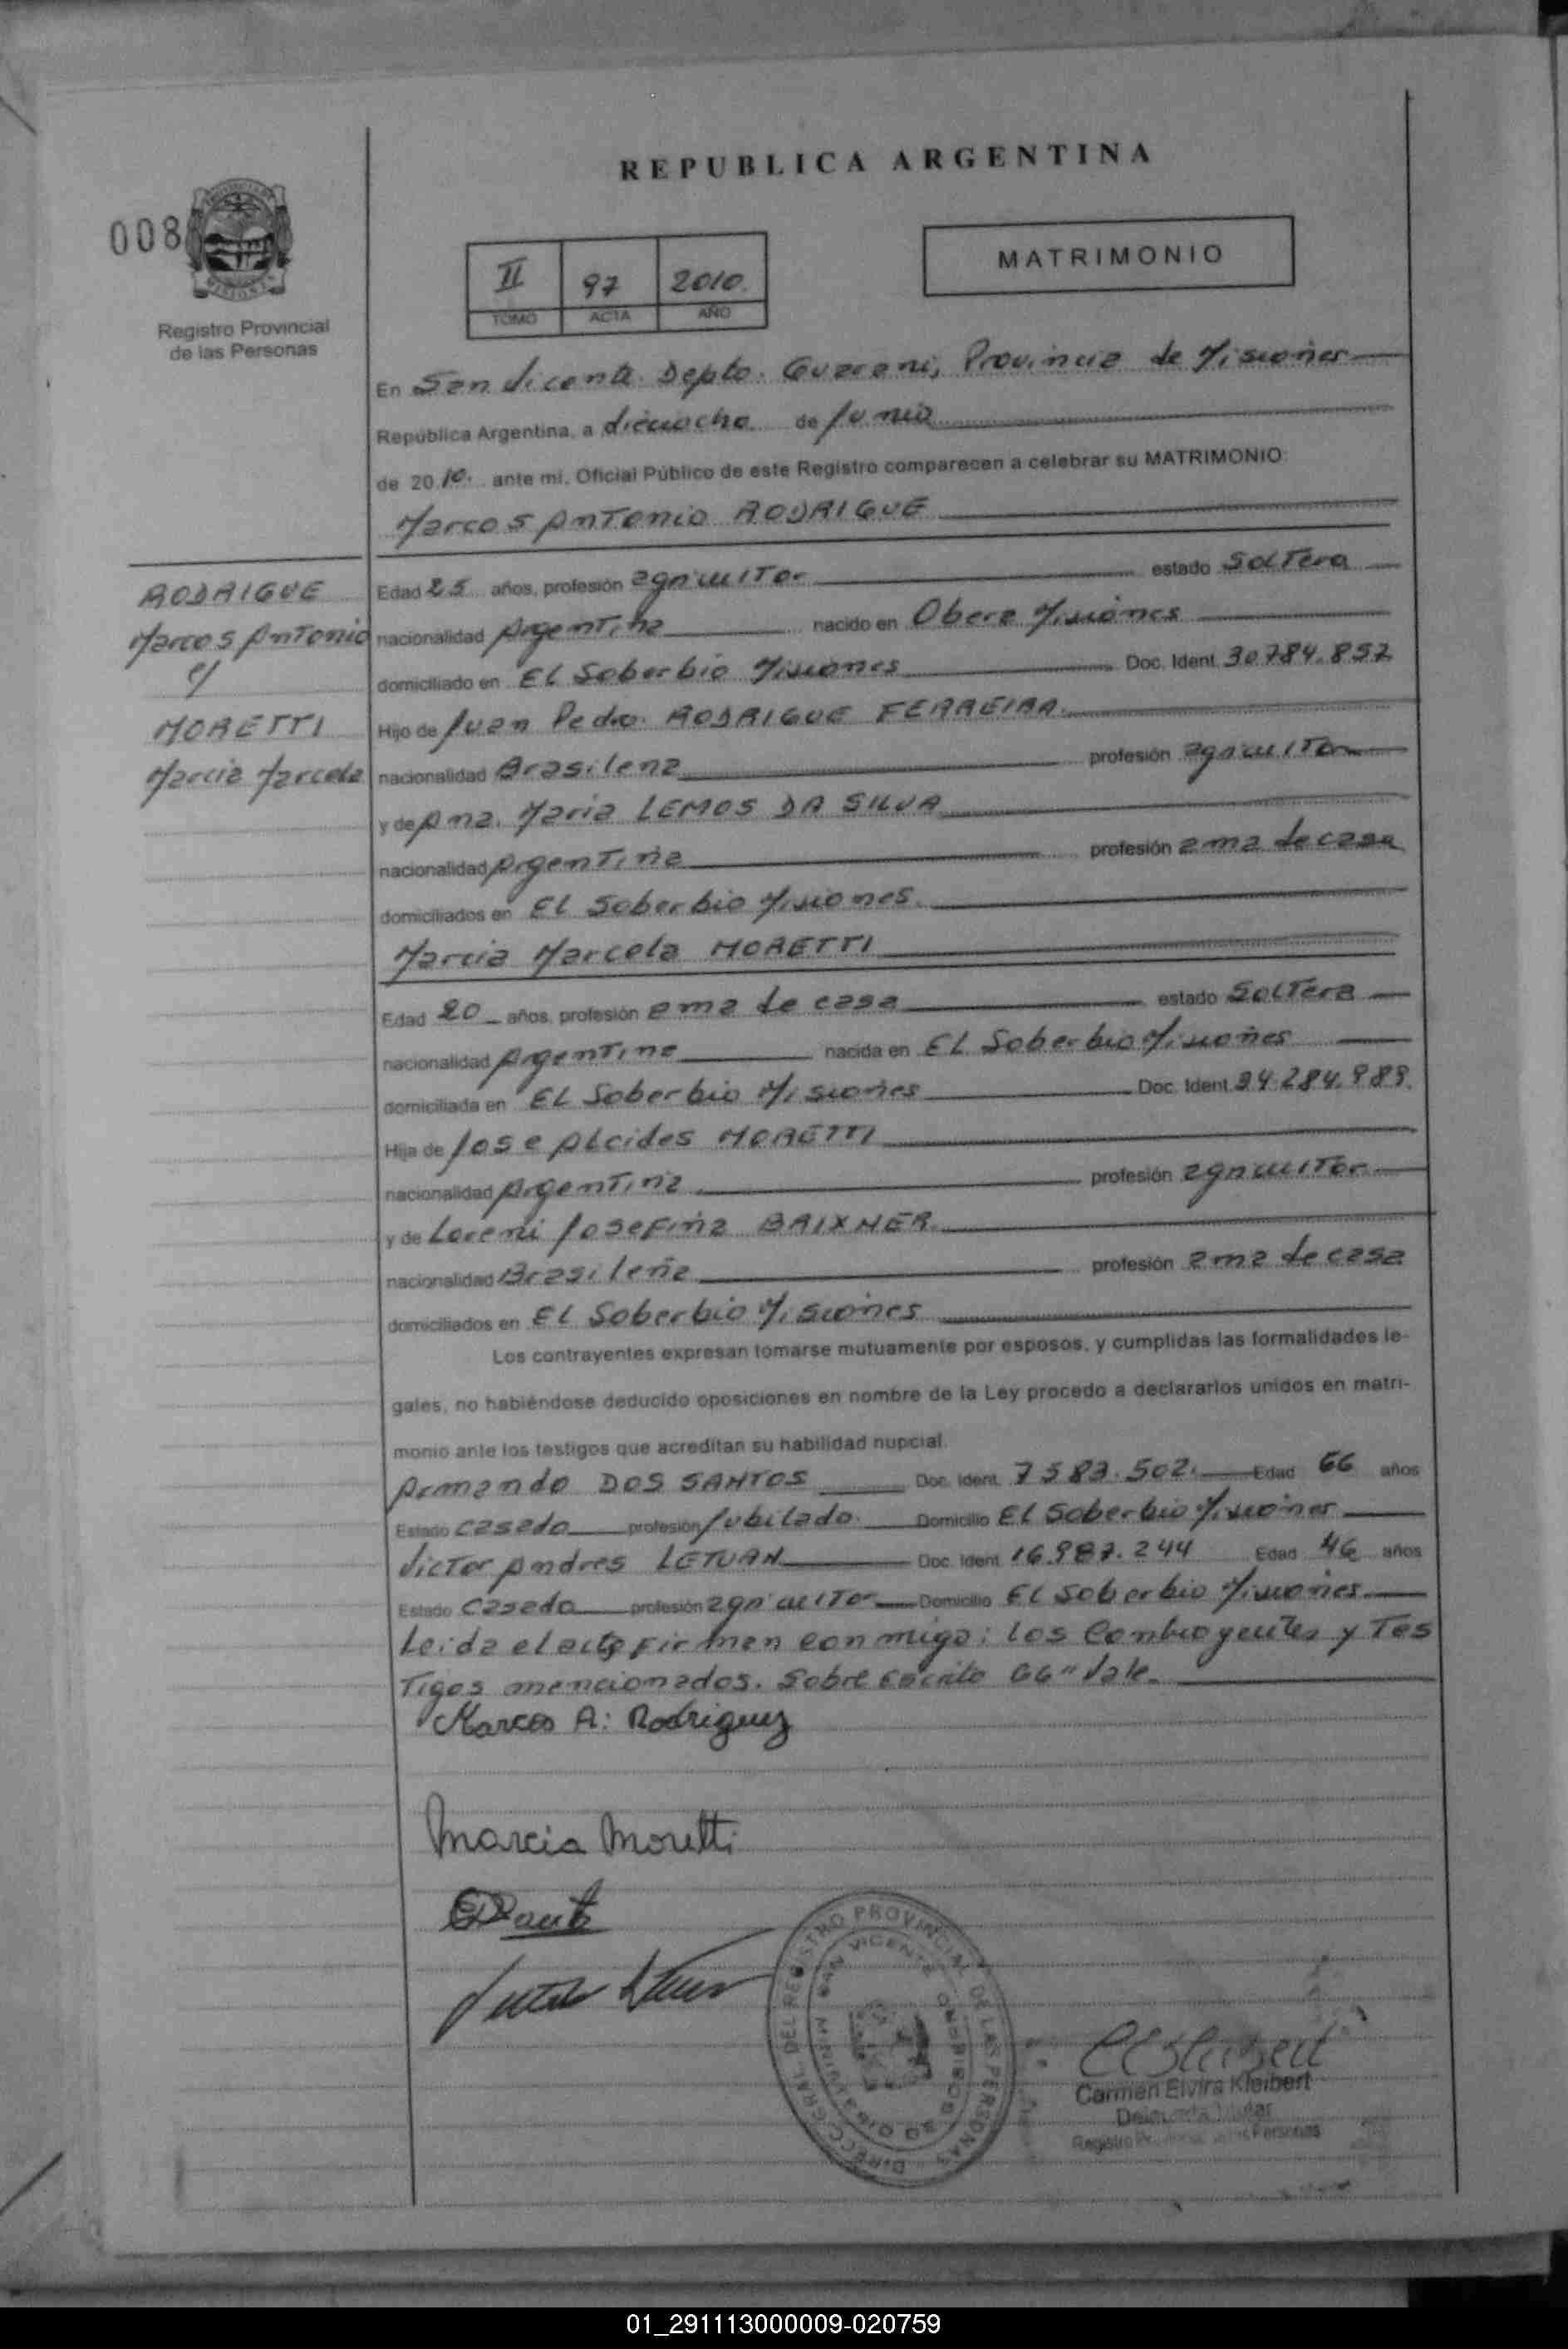 REPUBLICA ARGENTINA
008
Registro Provincial
de las Personas
II 97 2010.
TOMO ACTA AÑO
MATRIMONIO
En San Vicente Depto. Guarani, Provincia de Misiones
República Argentina, a dieciocho de Junio
de 2010. ante mi, Oficial Público de este Registro comparecen a celebrar su MATRIMONIO:
Marcos Antonio RODRIGUE
RODRIGUE
Marcos Antonio
c/
MORETTI
Marcia Marcela
Edad 25 años, profesión agricultor estado Soltero
nacionalidad Argentina nacido en Obera Misiones
domiciliado en El Soberbio Misiones Doc. Ident. 30.784.852
Hijo de Juan Pedro RODRIGUE FERREIRA
nacionalidad Brasilena profesión agricultor
y de Ana Maria LEMOS DA SILVA
nacionalidad Argentina profesión ama de casa
domiciliados en El Soberbio Misiones.
Marcia Marcela MORETTI
Edad 20 años, profesión ama de casa estado Soltera
nacionalidad Argentina nacida en El Soberbio Misiones
domiciliada en El Soberbio Misiones Doc. Ident.
Hija de Jose Alcides MORETTI
nacionalidad Argentina profesión agricultor
y de Loreni Josefina BRIXNER
nacionalidad Brasileña profesión ama de casa
domiciliados en El Soberbio Misiones
Los contrayentes expresan tomarse mutuamente por esposos, y cumplidas las formalidades le-
gales, no habiéndose deducido oposiciones en nombre de la Ley procedo a declararlos unidos en matri-
monio ante los testigos que acreditan su habilidad nupcial.
Armando DOS SANTOS Doc. Ident. 7583.502. Edad 66 años
Estado Casado profesión Jubilado Domicilio El Soberbio Misiones
Victor Andres LETUAN Doc. Ident. 16.987.244 Edad 46 años
Estado Casado profesión agricultor Domicilio El Soberbio Misiones
Leida el acta firman conmigo: los Contrayentes y Tes
Tigos mencionados. Sobre Escrito 66" Vale.
Marcos A: Rodriguez
Marcia Moretti
DIRECC. GRAL. DEL REGISTRO PROVINCIAL DE LAS PERSONAS
SAN VICENTE
Carmen Elvira Kleibert
Registro Personas
01_291113000009-020759